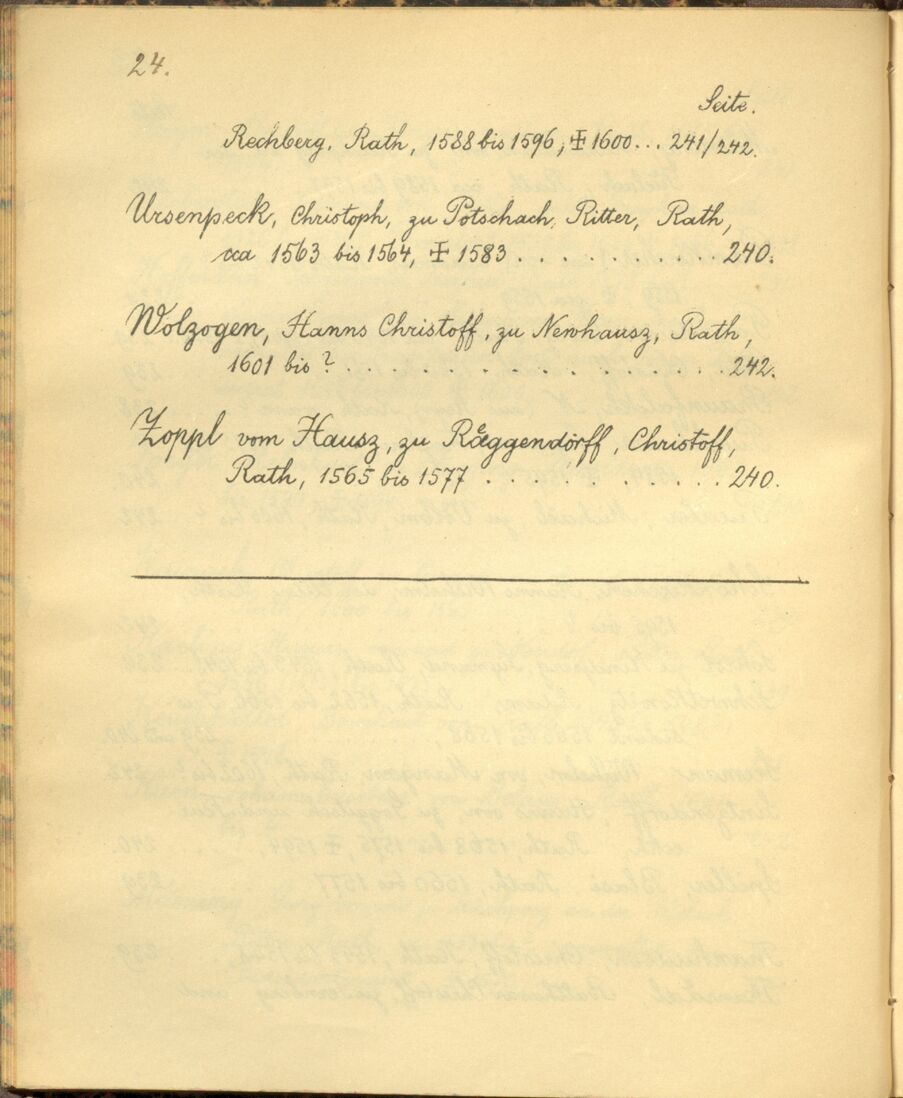 24.
Seite.
Rechberg, Rath, 1588 bis 1596, ✠ 1600... 241/242.
Ursenpeck, Christoph, zu Potschach, Ritter, Rath,
cca 1563 bis 1564, ✠ 1583 . . . . . . . . . . 240.
Wolzogen, Hanns Christoff, zu Newhausz, Rath,
1601 bis ? . . . . . . . . . . . . . . . . 242.
Zoppl vom Hausz, zu Räggendörff, Christoff,
Rath, 1565 bis 1577 . . . . . . . . . . 240.